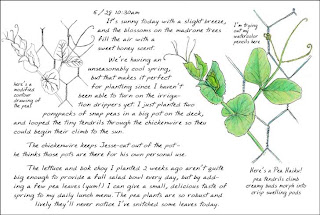 5/29 10:30am
It's sunny today with a slight breeze,
and the blossoms on the madrone trees
fill the air with a
sweet honey scent.
We're having an
unseasonably cool spring,
but that makes it perfect
for planting since I haven't
been able to turn on the irriga-
tion drippers yet. I just planted two
ponypacks of snap peas in a big pot on the deck,
and looped the tiny tendrils through the chickenwire so they
could begin their climb to the sun.
The chickenwire keeps Jesse-cat out of the pot-
he thinks those pots are there for his own personal use.
The lettuce and bok choy I planted 2 weeks ago aren't quite
big enough to provide a full salad bowl every day, but by add-
ing a few pea leaves (yum!) I can give a small, delicious taste of
spring to my daily lunch menu. The pea plants are so robust and
lively they'll never notice I've snitched some leaves today.
Here's a
modified
contour
drawing of
the pea!
I'm trying out
my
watercolor
pencils here
Here's a Pea Haiku!
pea tendrils climb
creamy buds morph into
crisp swelling pods